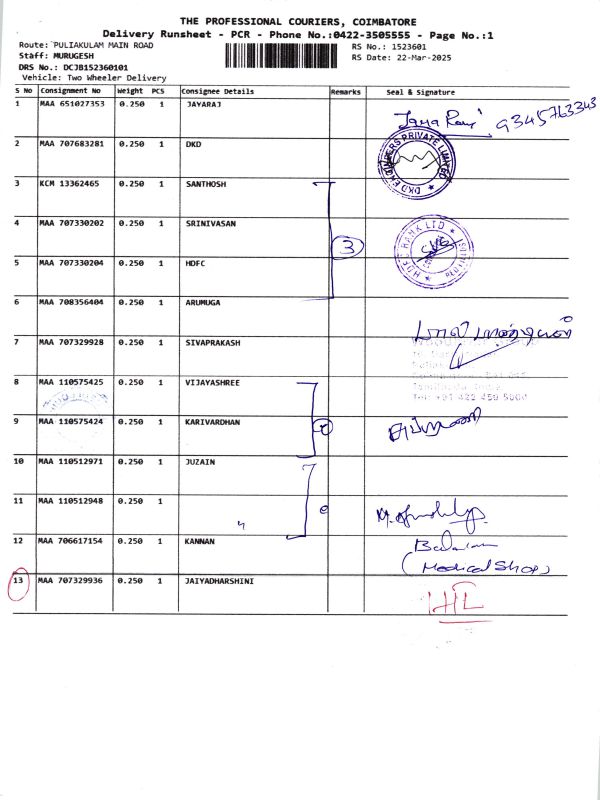 THE PROFESSIONAL COURIERS, COIMBATORE
Delivery Runsheet - PCR - Phone No.:0422-3505555 - Page No.:1
Route: PULIAKULAM MAIN ROAD RS No.: 1523601
Staff: MURUGESH RS Date: 22-Mar-2025
DRS No.: DCJB152360101
Vehicle: Two Wheeler Delivery
S No Consignment No Weight PCS Consignee Details Remarks Seal & Signature
1 MAA 651027353 0.250 1 JAYARAJ
9345763343
2 MAA 707683281 0.250 1 DKD
DKD ENGINEERS PRIVATE LIMITED
3 KCM 13362465 0.250 1 SANTHOSH
4 MAA 707330202 0.250 1 SRINIVASAN
3
HDFC BANK LTD
5 MAA 707330204 0.250 1 HDFC
6 MAA 708356404 0.250 1 ARUMUGA
7 MAA 707329928 0.250 1 SIVAPRAKASH
8 MAA 110575425 0.250 1 VIJAYASHREE
9 MAA 110575424 0.250 1 KARIVARDHAN
10 MAA 110512971 0.250 1 JUZAIN
11 MAA 110512948 0.250 1 "
12 MAA 706617154 0.250 1 KANNAN
(Medical Shop)
13 MAA 707329936 0.250 1 JAIYADHARSHINI